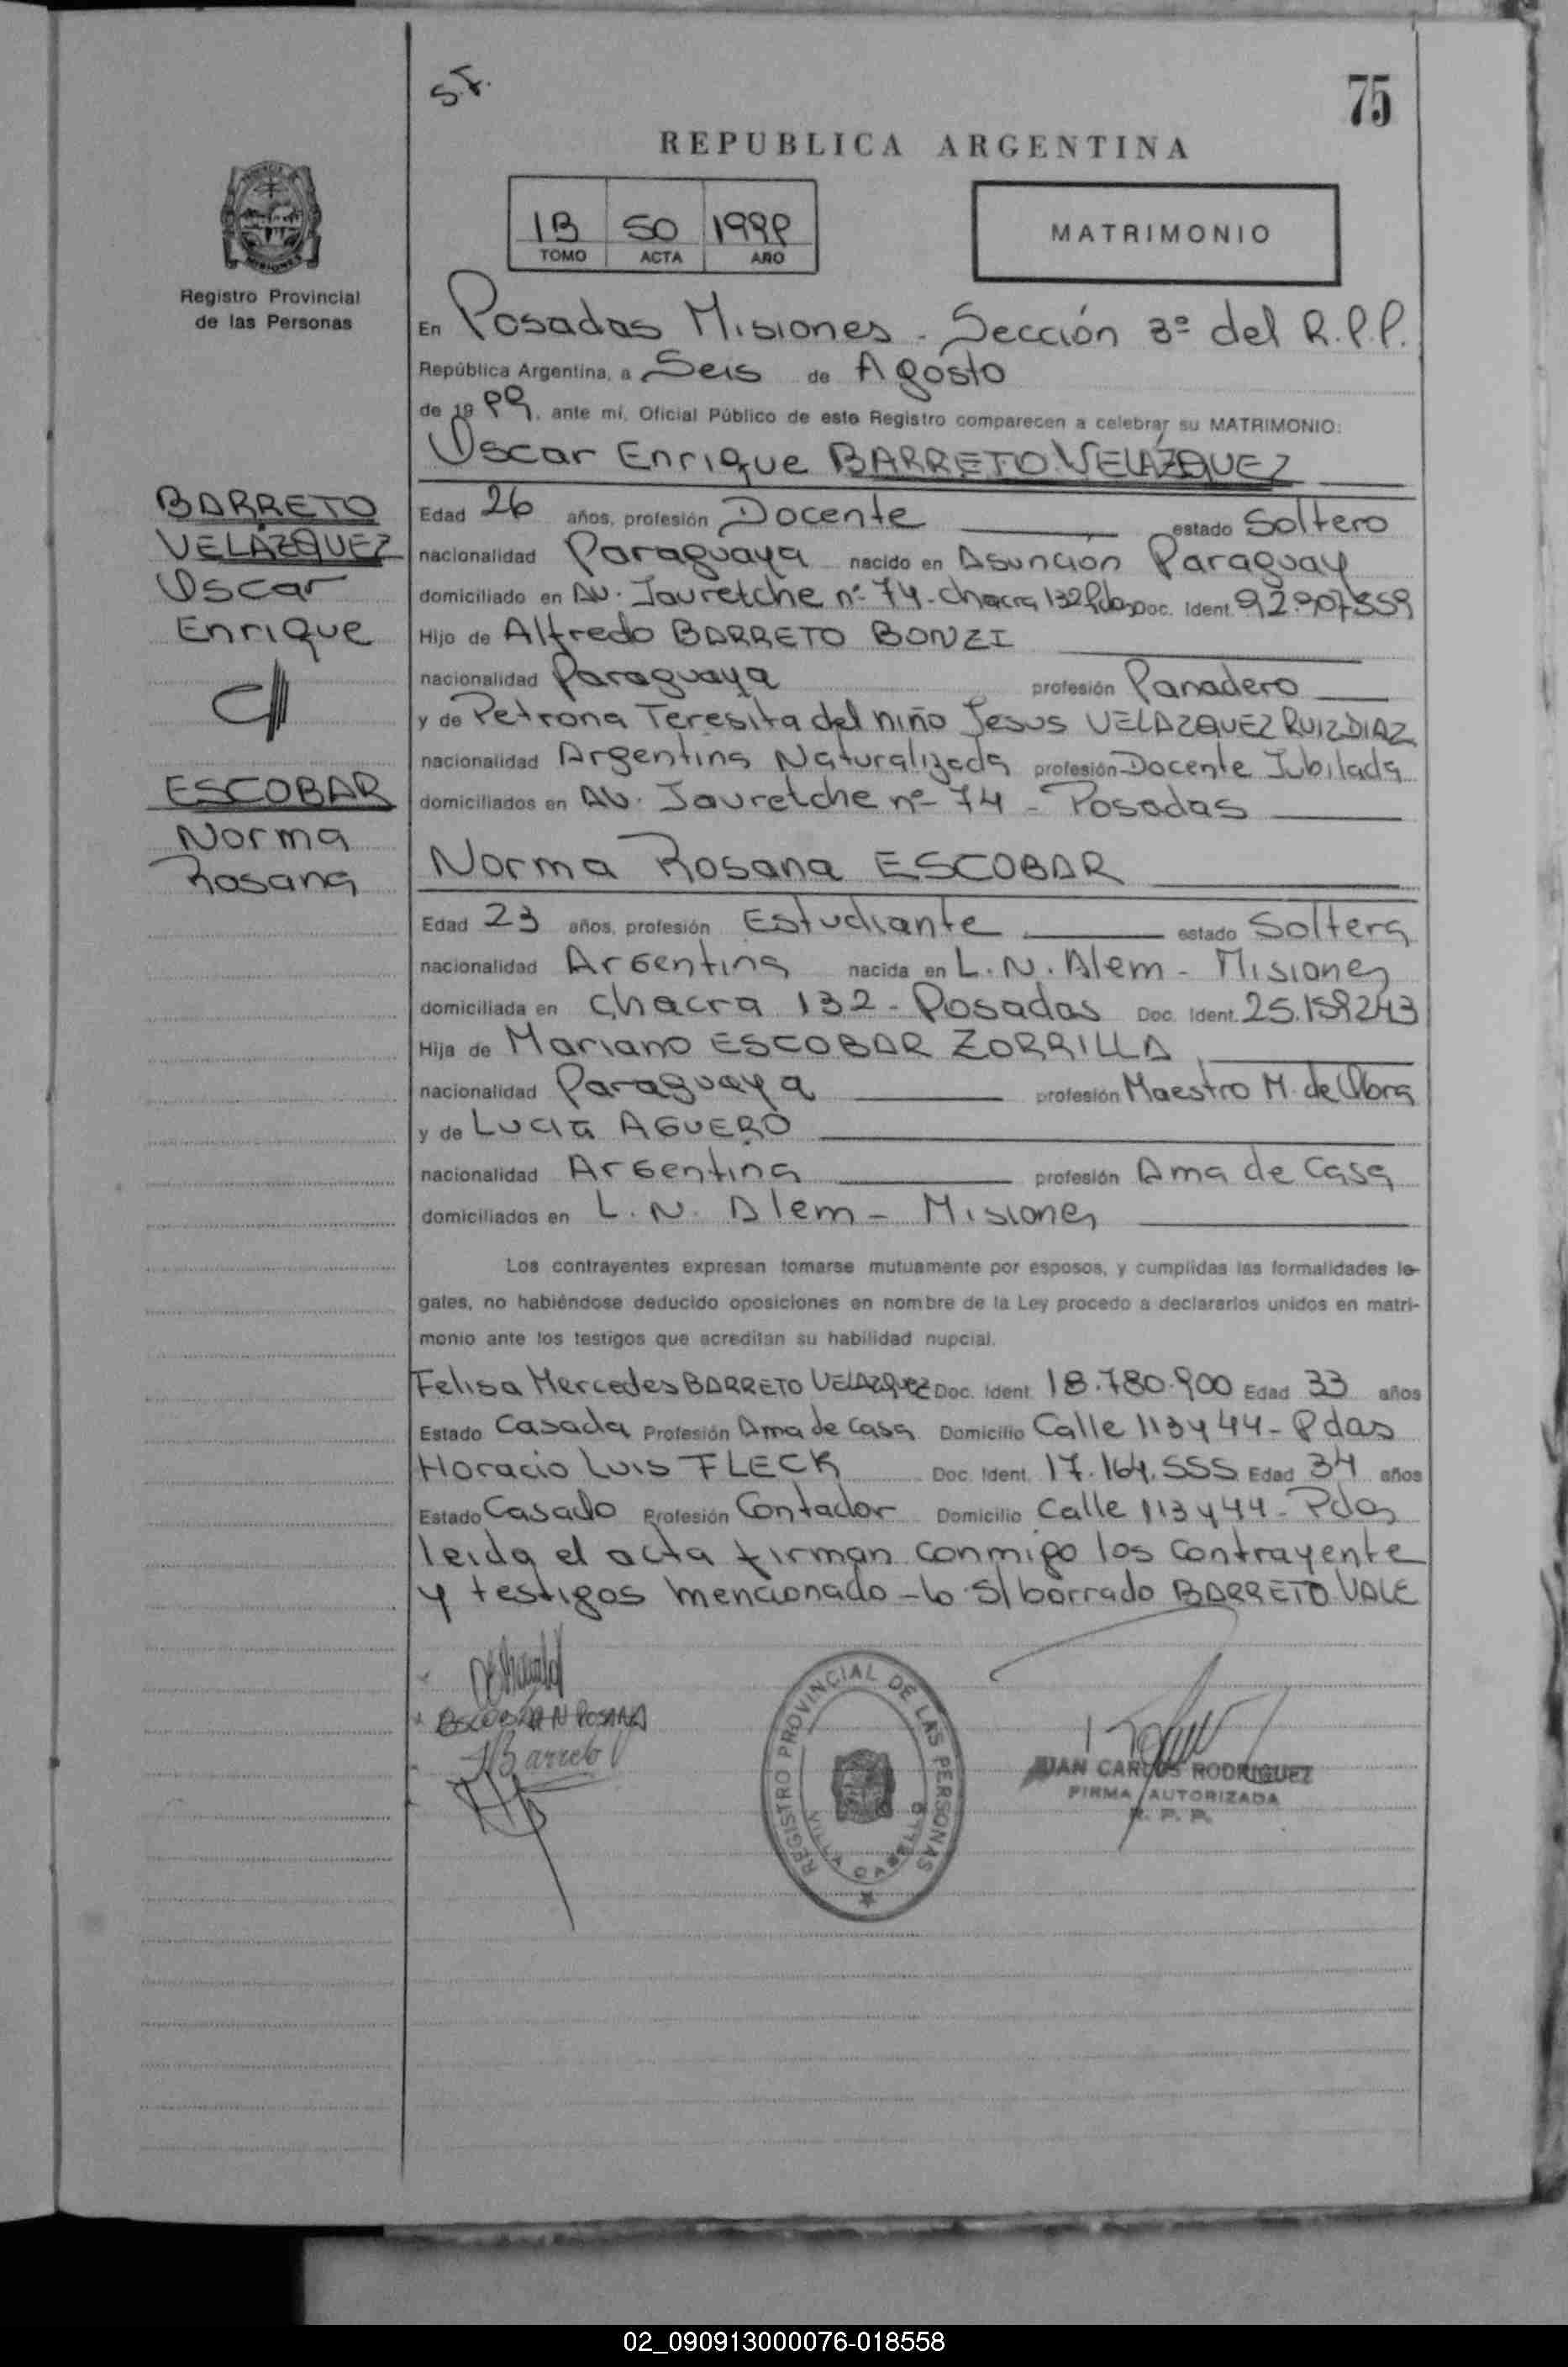 S.F.
75
REPUBLICA ARGENTINA
1B 50 1999
TOMO ACTA AÑO
MATRIMONIO
Registro Provincial
de las Personas
En Posadas Misiones - Sección 3º del R.P.P.
República Argentina, a Seis de Agosto
de 1999, ante mí, Oficial Público de este Registro comparecen a celebrar su MATRIMONIO:
Oscar Enrique BARRETO VELÁZQUEZ
BARRETO
VELÁZQUEZ
Oscar
Enrique
C/
ESCOBAR
Norma
Rosana
Edad 26 años, profesión Docente estado Soltero
nacionalidad Paraguaya nacido en Asunción Paraguay
domiciliado en Av. Jauretche nº 74 - Chacra 132 Pdas Doc. Ident. 92.907.559
Hijo de Alfredo BARRETO BONZI
nacionalidad Paraguaya profesión Panadero
y de Petrona Teresita del niño Jesus VELAZQUEZ RUIZDIAZ
nacionalidad Argentina Naturalizada profesión Docente Jubilada
domiciliados en Av. Jauretche nº 74 - Posadas
Norma Rosana ESCOBAR
Edad 23 años, profesión Estudiante estado Soltera
nacionalidad Argentina nacida en L. N. Alem - Misiones
domiciliada en Chacra 132 - Posadas Doc. Ident. 25.159243
Hija de Mariano ESCOBAR ZORRILLA
nacionalidad Paraguaya profesión Maestro M. de Obra
y de Lucia AGUERO
nacionalidad Argentina profesión Ama de Casa
domiciliados en L. N. Alem - Misiones
Los contrayentes expresan tomarse mutuamente por esposos, y cumplidas las formalidades le-
gales, no habiéndose deducido oposiciones en nombre de la Ley procedo a declararlos unidos en matri-
monio ante los testigos que acreditan su habilidad nupcial.
Felisa Mercedes BARRETO VELAZQUEZ Doc. Ident. 18.780.900 Edad 33 años
Estado Casada Profesión Ama de Casa Domicilio Calle 113 y 44 - Pdas
Horacio Luis FLECK Doc. Ident. 17.164.555 Edad 34 años
Estado Casado Profesión Contador Domicilio Calle 113 y 44 - Pdas
leida el acta firman conmigo los Contrayente
y testigos mencionado - lo S/borrado BARRETO VALE
ESCOBAR N ROSANA
Barreto
REGISTRO PROVINCIAL DE LAS PERSONAS
VILLA CABELLO
JUAN CARLOS RODRIGUEZ
FIRMA AUTORIZADA
R. P. P.
02_090913000076-018558